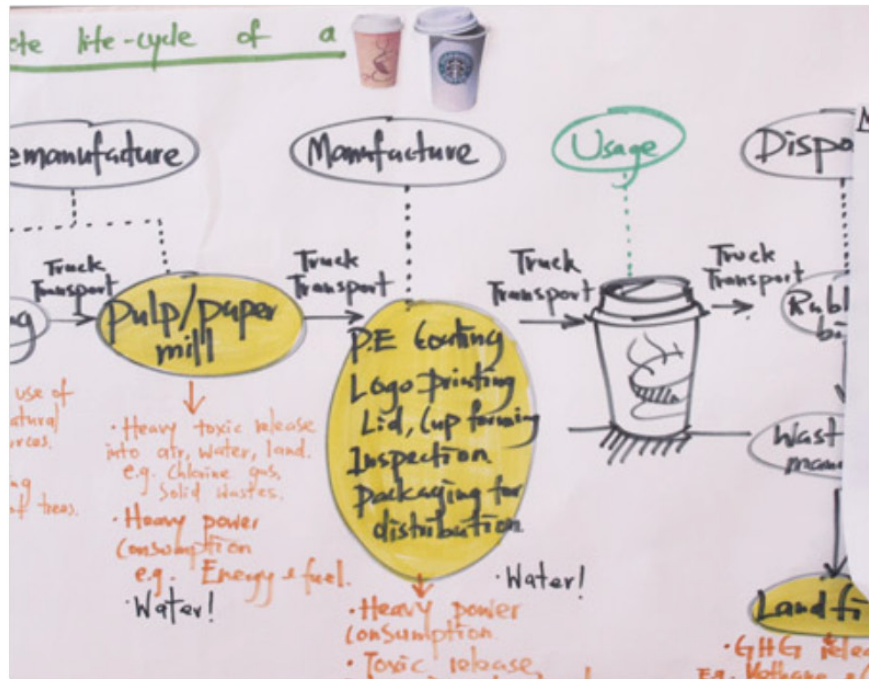 life-cycle of a
emanufacture
Manufacture
Usage
Dispo
Truck
Transport
Truck
Transport
Truck
Transport
Truck
Transport
Pulp/paper
mill
P.E Coating
Logo printing
Lid, Cup forming
Inspection
Packaging for
distribution
Rubb
bi
Wast
man
Landfi
use of
atural
urces.
ng
of trees.
· Heavy toxic release
into air, water, land.
e.g. Chlorine gas,
Solid wastes.
· Heavy power
consumption
e.g. Energy & fuel.
· Water!
· Water!
· Heavy power
consumption.
· Toxic release
· GHG relea
Eg. Methane